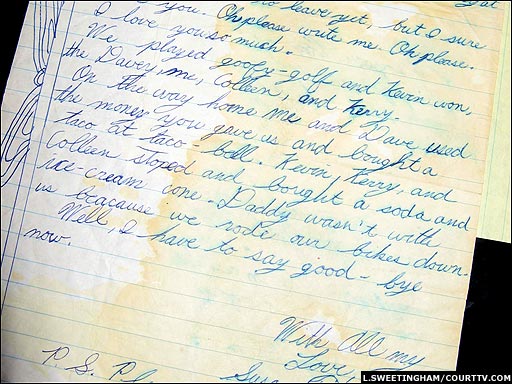 you. to leave yet, but I sure
I love you so much. Oh please write me. Oh please.
We played goofy-golf and Kevin won,
the Davey, me, Colleen, and Kerry.
On the way home me and Dave used
the money you gave us and bought a
taco at taco-bell. Kevin, Kerry, and
Colleen stoped and bought a soda and
ice-cream cone. Daddy wasn't with
us bacause we rode our bikes down.
Well, I have to say good-bye
now.
With All my
Love
P.S.
L.SWEETINGHAM/COURTTV.COM